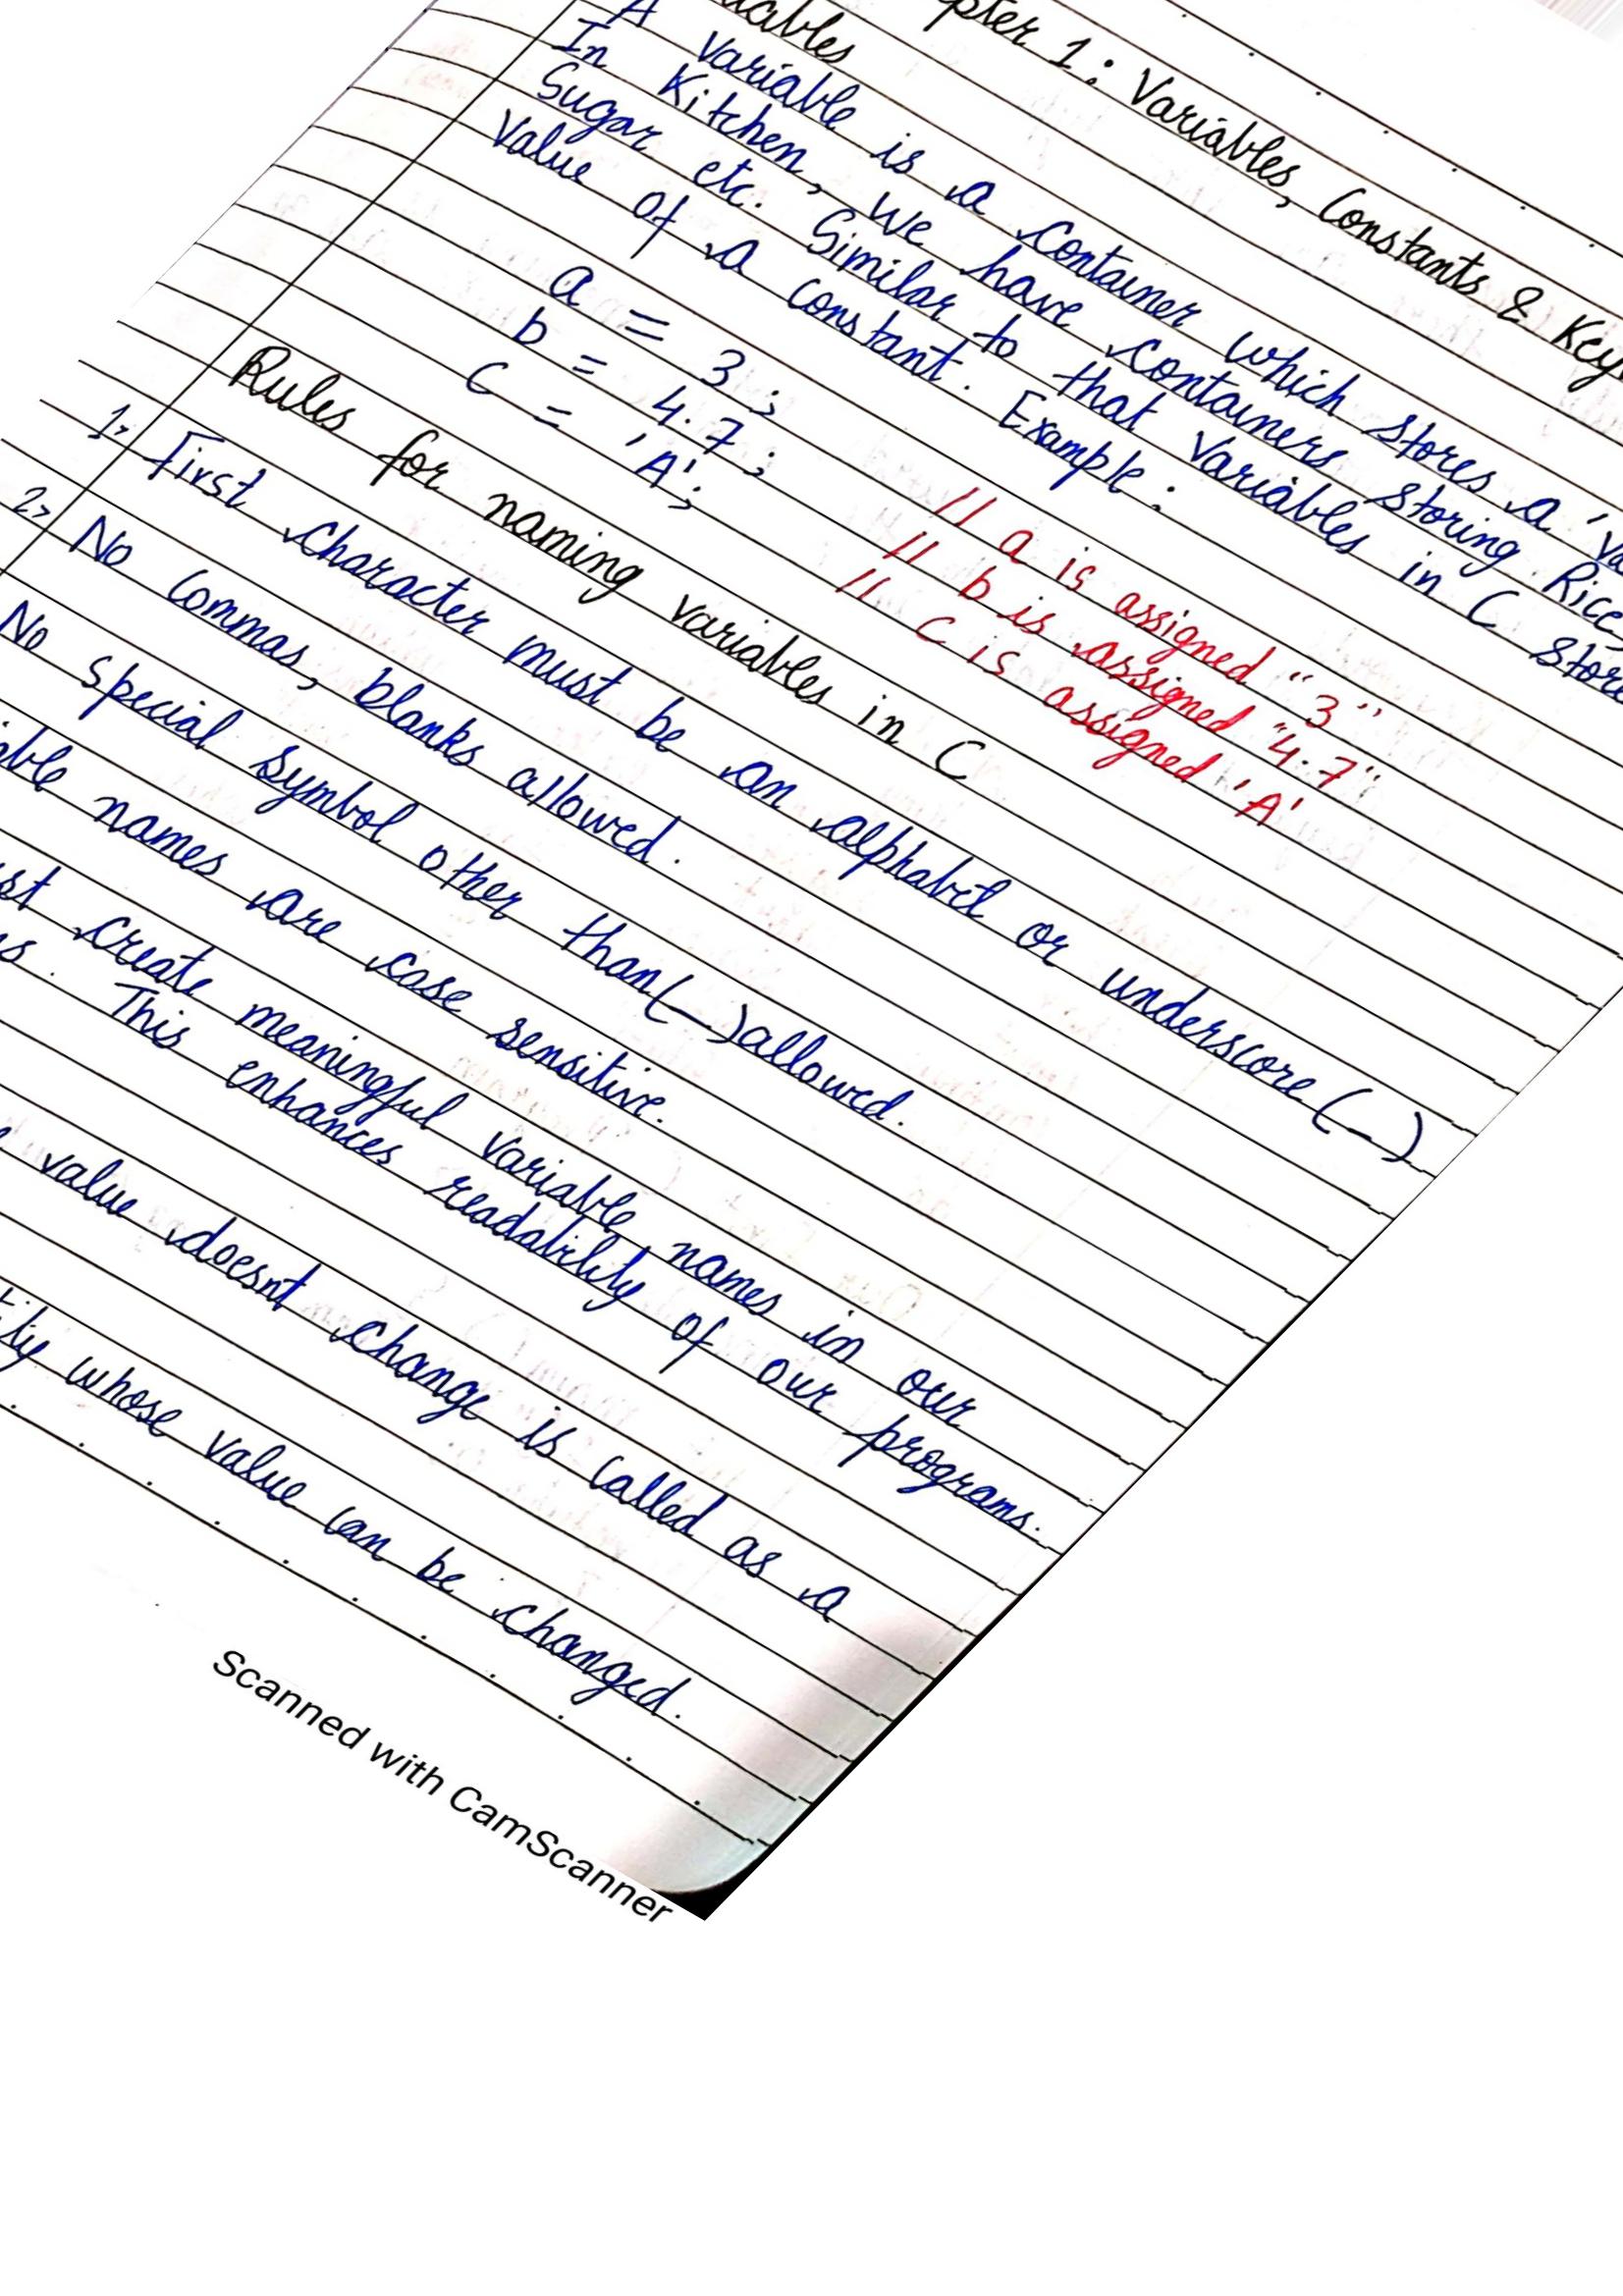 1: Variables, Constants &
A variable is a container which stores a
In Kitchen, We have containers storing Rice,
Sugar etc. Similar to that Variables in C
Value of a constant. Example:
a = 3; // a is assigned "3"
b = 4.7; // b is assigned "4.7"
C = 'A'; // C is assigned 'A'
Rules for naming variables in C
1> First character must be an alphabet or underscore (_)
2> No commas, blanks allowed.
No special symbol other than (_) allowed.
names are case sensitive.
create meaningful variable names in our
This enhances readability of our programs.
value doesnt change is called as a
whose value can be changed.
Scanned with CamScanner